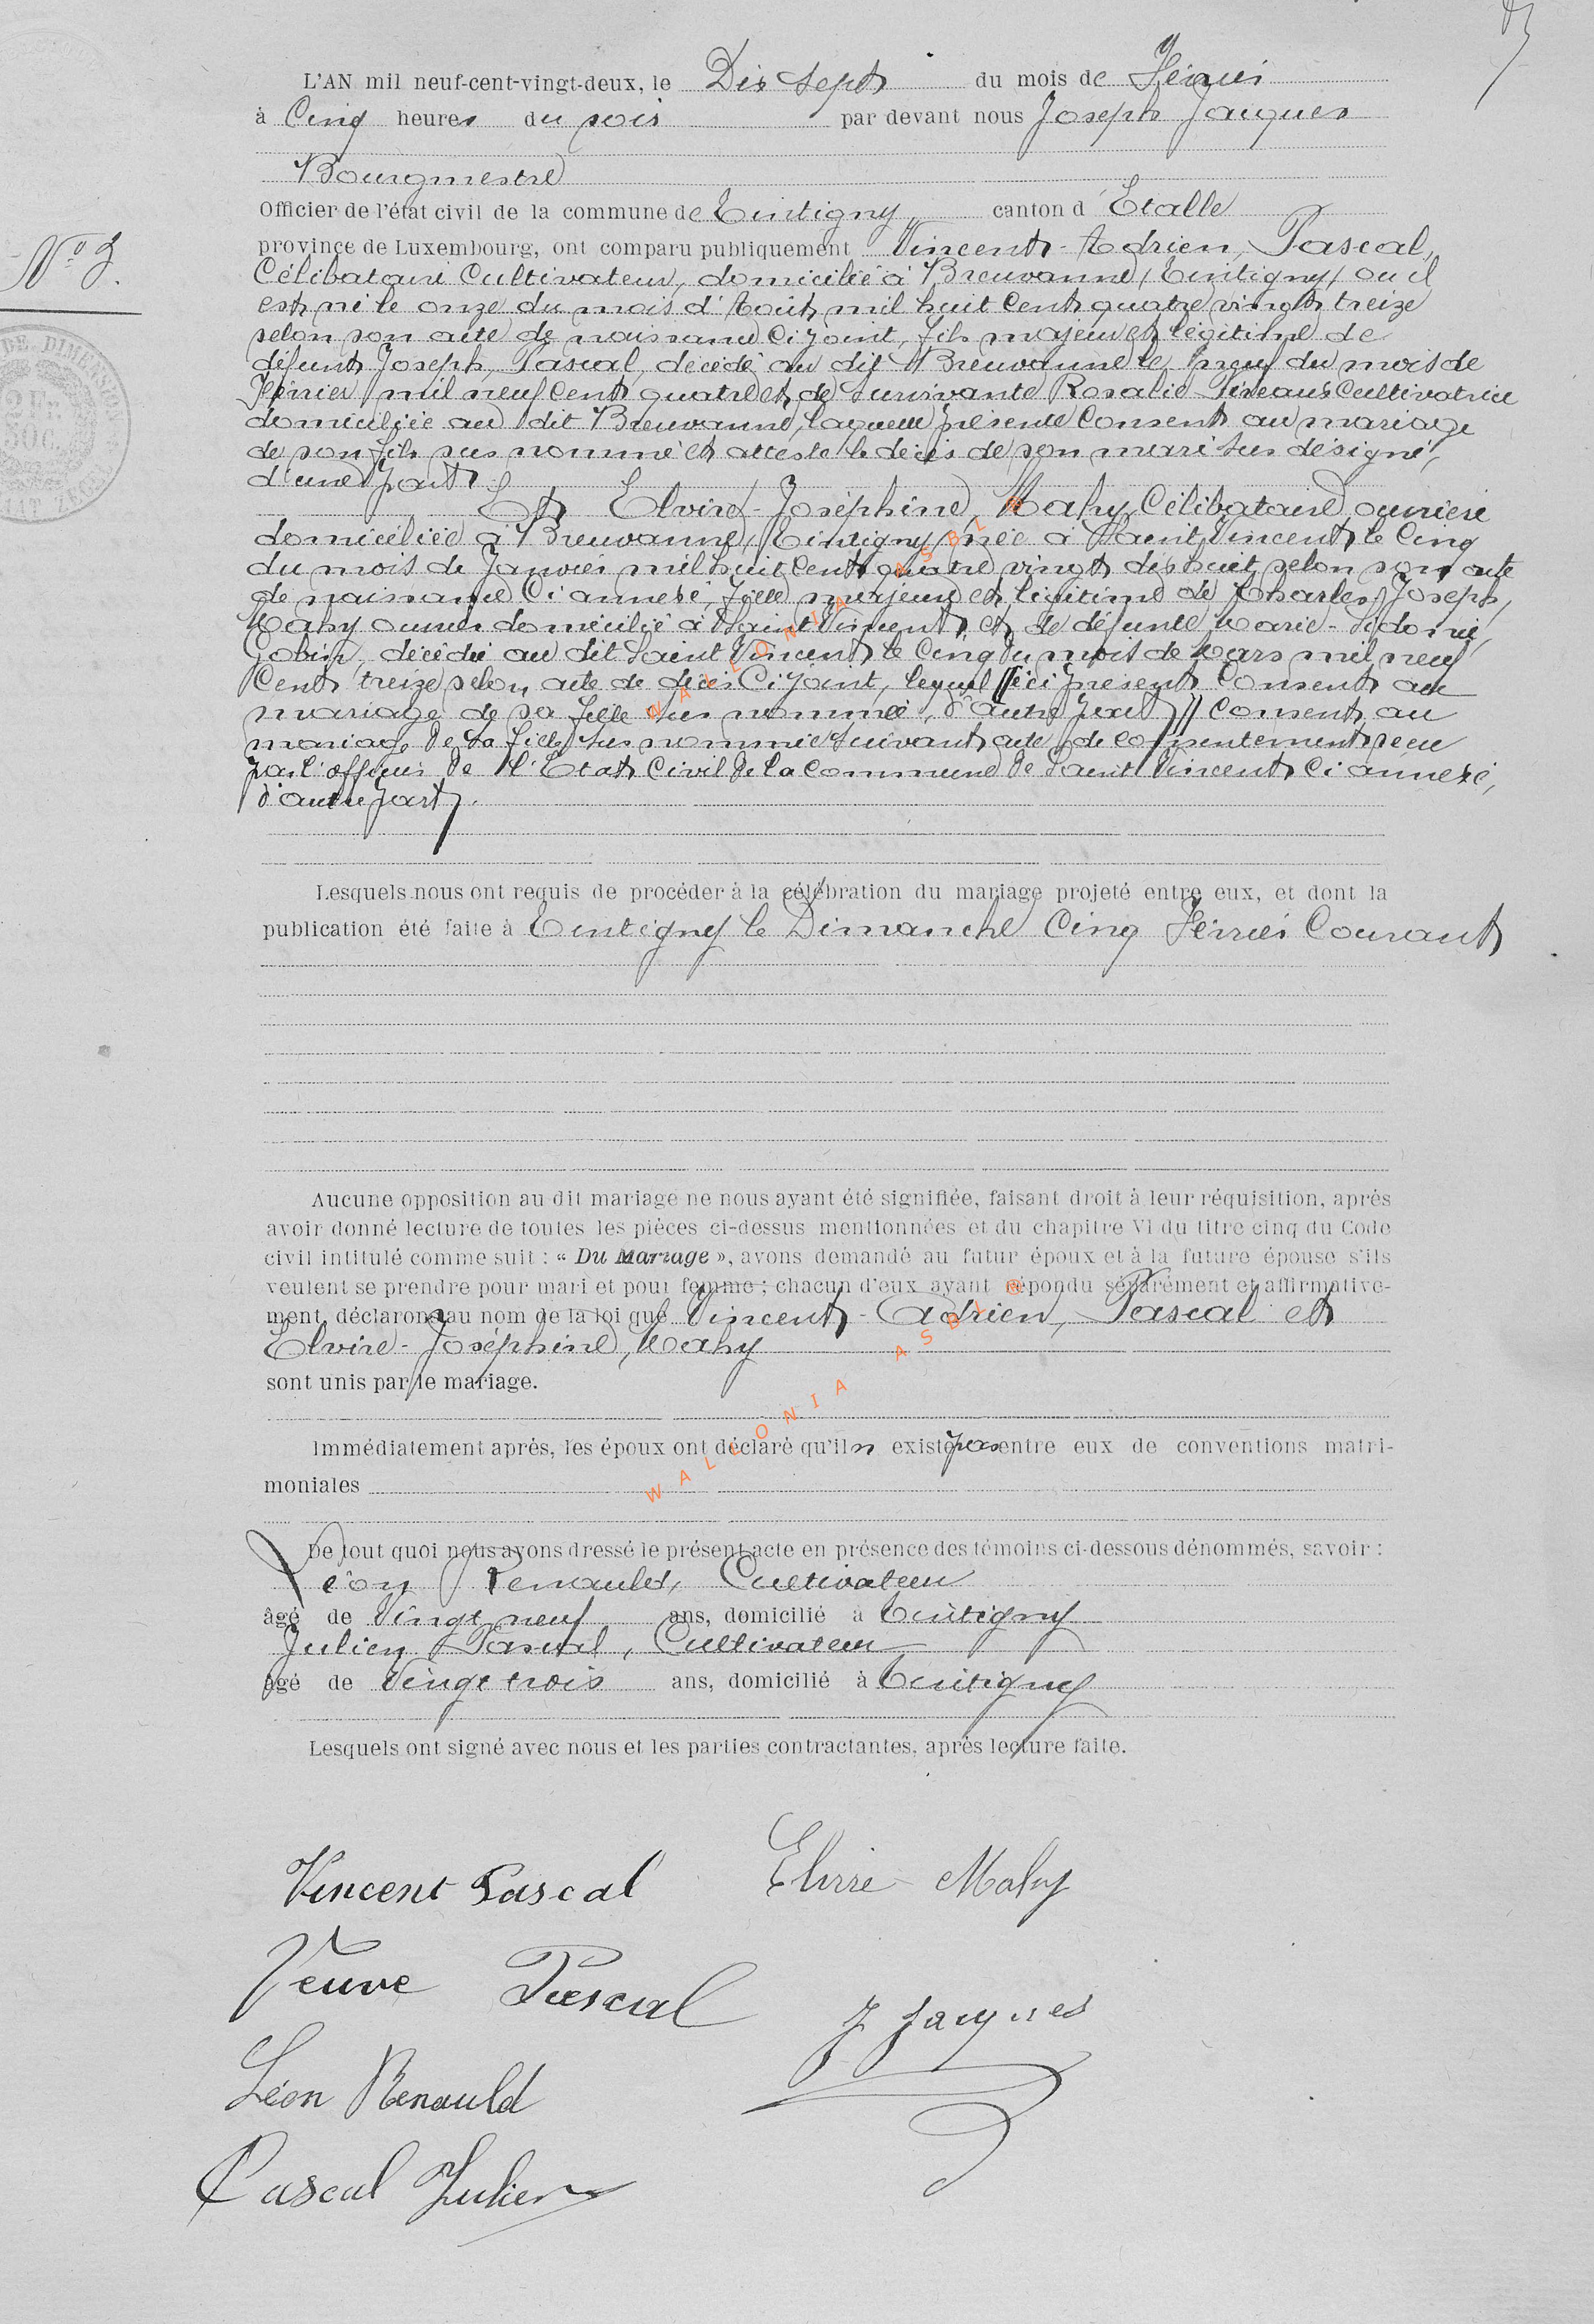 L'AN mil neuf-cent-vingt-deux, le Dix sept du mois de Février
à Cinq heures du soir par devant nous Joseph Jacques
Bourgmestre
Officier de l'état civil de la commune de Tintigny, canton d'Etalle
province de Luxembourg, ont comparu publiquement Vincent-Adrien, Pascal,
N° 3.
Célibataire Cultivateur, domicilié à Breuvanne, (Tintigny) où il
est né le onze du mois d'Août mil huit cent quatre vingt treize
selon son acte de naissance Ci joint, fils majeur et légitime de
défunt Joseph, Pascal, décédé au dit Breuvanne le neuf du mois de
Février mil neuf cent quatre et de survivante Rosalie Cultivatrice
domiciliée au dit Breuvanne, laquelle présente Consent au mariage
de son fils sus nommé et atteste le décès de son mari sus désigné,
d'une part,
Et Elvire-Joséphine, Mahy, Célibataire ouvrière
domiciliée à Breuvanne, (Tintigny) née à Saint Vincent, le Cinq
du mois de Janvier mil huit Cent quatre vingt dix huit, selon son acte
de naissance Ci annexé, fille majeure et légitime de Charles, Joseph,
Mahy ouvrier domicilié à Saint Vincent, et de défunte Marie-Sidonie,
Gobin, décédée au dit Saint Vincent le Cinq du mois de Mars mil neuf
Cent treize selon acte de décès Ci joint, lequel // ici présent Consent au
mariage de sa fille sus nommée, d'autre part // Consent au
mariage de sa fille sus nommée suivant acte de Consentement reçu
par l'officier de l'Etat Civil de la Commune de Saint Vincent Ci annexé,
d'autre part.
Lesquels nous ont requis de procéder à la célébration du mariage projeté entre eux, et dont la
publication été faite à Tintigny le Dimanche Cinq Février Courant
Aucune opposition au dit mariage ne nous ayant été signifiée, faisant droit à leur réquisition, après
avoir donné lecture de toutes les pièces ci-dessus mentionnées et du chapitre VI du titre cinq du Code
civil intitulé comme suit : « Du Mariage », avons demandé au futur époux et à la future épouse s'ils
veulent se prendre pour mari et pour femme ; chacun d'eux ayant répondu séparément et affirmative-
ment, déclarons au nom de la loi que Vincent-Adrien, Pascal et
Elvire-Joséphine, Mahy
sont unis par le mariage.
Immédiatement après, les époux ont déclaré qu'il n existe pas entre eux de conventions matri-
moniales
De tout quoi nous avons dressé le présent acte en présence des témoins ci-dessous dénommés, savoir :
Léon Renauld, Cultivateur
âgé de Vingt neuf ans, domicilié à Tintigny
Julien Pascal, Cultivateur
âgé de Vingt trois ans, domicilié à Tintigny
Lesquels ont signé avec nous et les parties contractantes, après lecture faite.
Vincent Pascal Elvire Mahy
Veuve Pascal
J Jacques
Léon Renauld
Pascal Julien
WALLONIA ASBL ©
WALLONIA ASBL ©